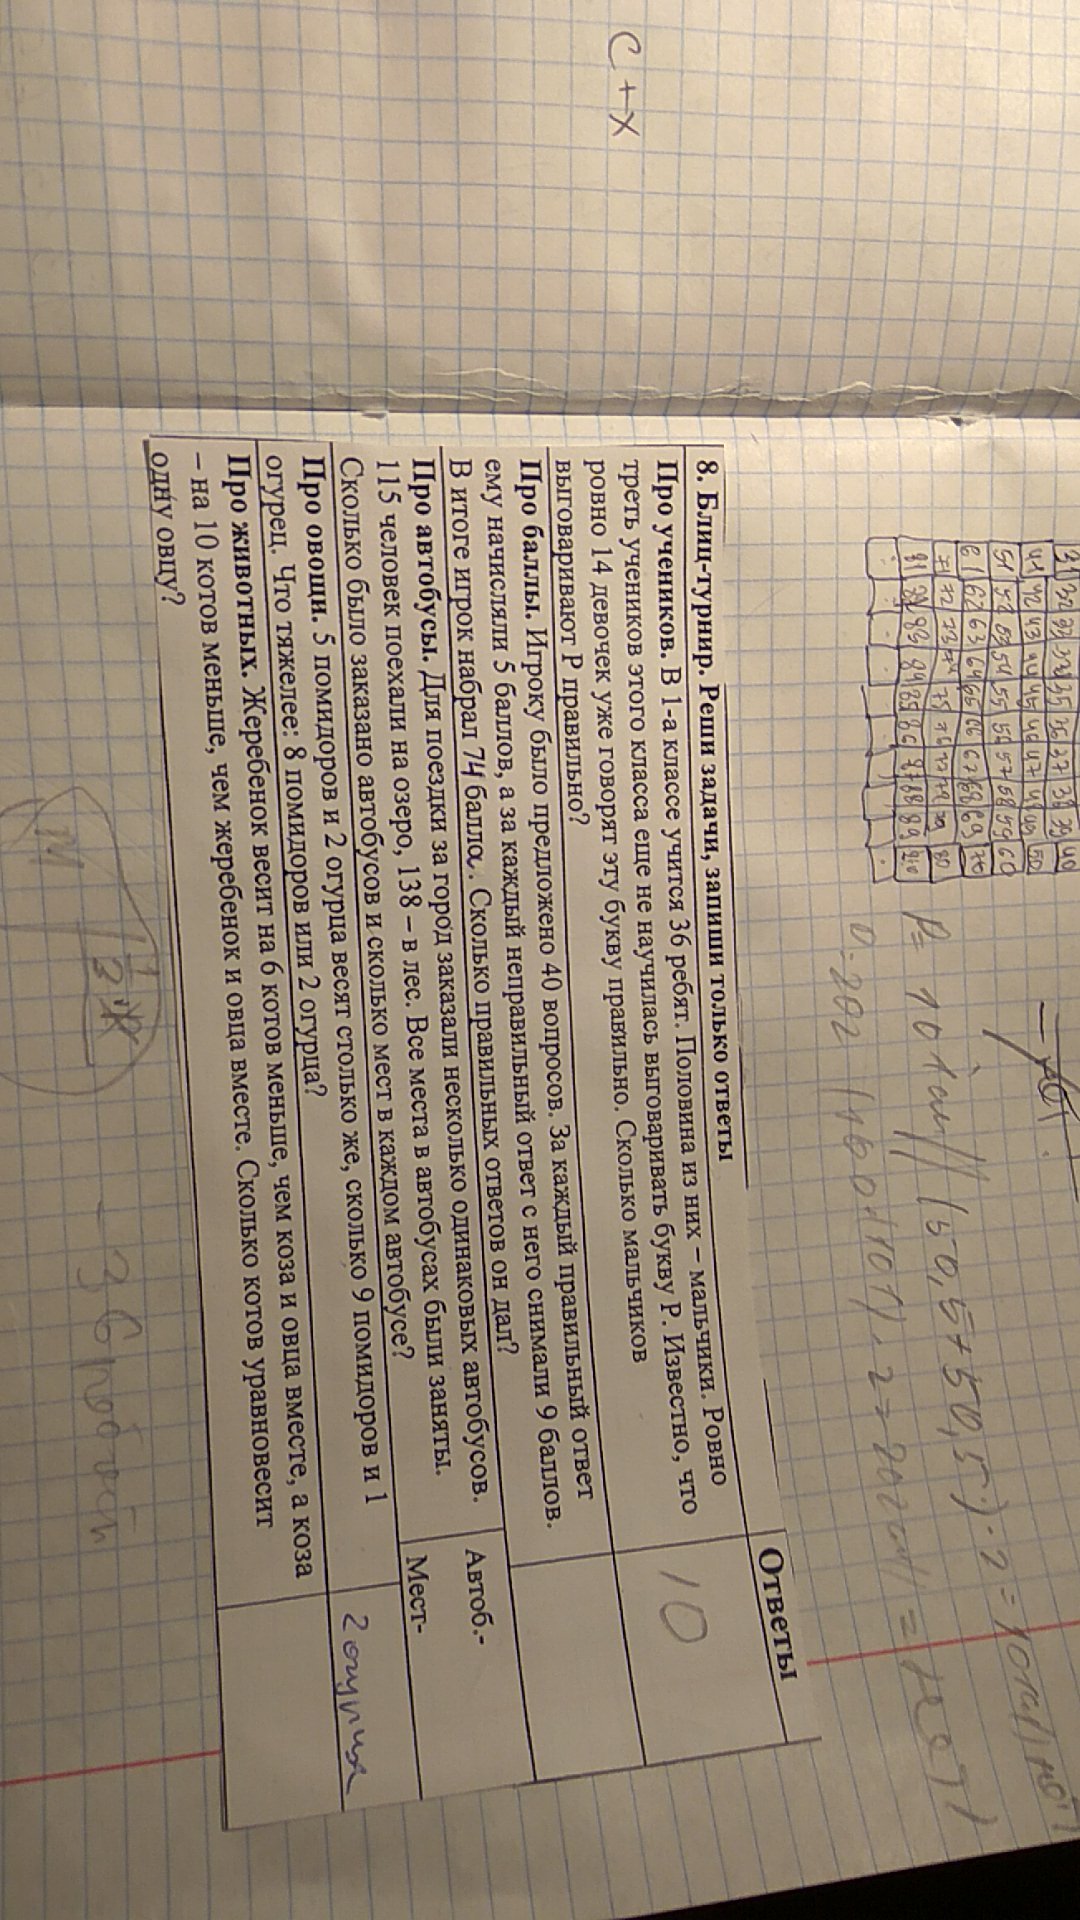 с + х
31 32 33 34 35 36 37 38 39 40
41 42 43 44 45 46 47 48 49 50
51 52 53 54 55 56 57 58 59 60
61 62 63 64 65 66 67 68 69 70
71 72 73 74 75 76 77 78 79 80
81 82 83 84 85 86 87 88 89
(50,5+50,5)·2=
8. Блиц-турнир. Реши задачи, запиши только ответы
Ответы
Про учеников. В 1-а классе учится 36 ребят. Половина из них – мальчики. Ровно
треть учеников этого класса еще не научилась выговаривать букву Р. Известно, что
ровно 14 девочек уже говорят эту букву правильно. Сколько мальчиков
выговаривают Р правильно?
10
Про баллы. Игроку было предложено 40 вопросов. За каждый правильный ответ
ему начисляли 5 баллов, а за каждый неправильный ответ с него снимали 9 баллов.
В итоге игрок набрал 74 балла. Сколько правильных ответов он дал?
Про автобусы. Для поездки за город заказали несколько одинаковых автобусов.
115 человек поехали на озеро, 138 – в лес. Все места в автобусах были заняты.
Сколько было заказано автобусов и сколько мест в каждом автобусе?
Автоб.-
Мест-
Про овощи. 5 помидоров и 2 огурца весят столько же, сколько 9 помидоров и 1
огурец. Что тяжелее: 8 помидоров или 2 огурца?
2 огурца
Про животных. Жеребенок весит на 6 котов меньше, чем коза и овца вместе, а коза
– на 10 котов меньше, чем жеребенок и овца вместе. Сколько котов уравновесит
одну овцу?